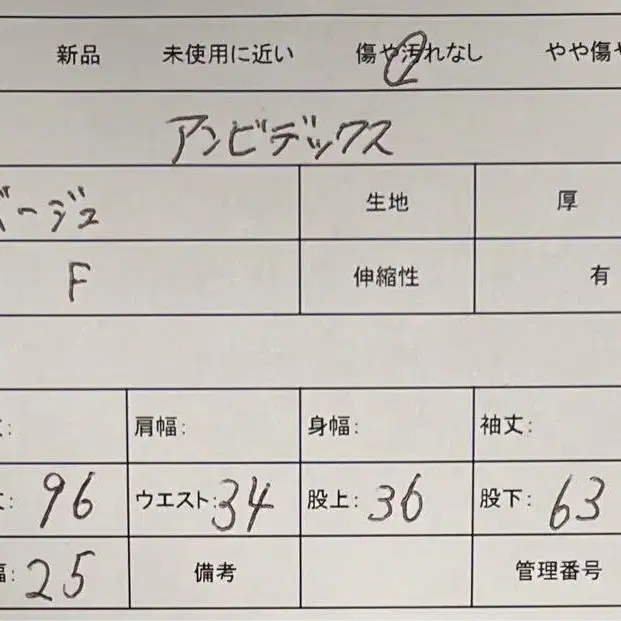 新品 未使用に近い 傷や汚れなし やや傷や
アンビデックス
ベージュ 生地 厚
F 伸縮性 有
丈: 肩幅: 身幅: 袖丈:
丈: 96 ウエスト: 34 股上: 36 股下: 63
幅: 25 備考 管理番号